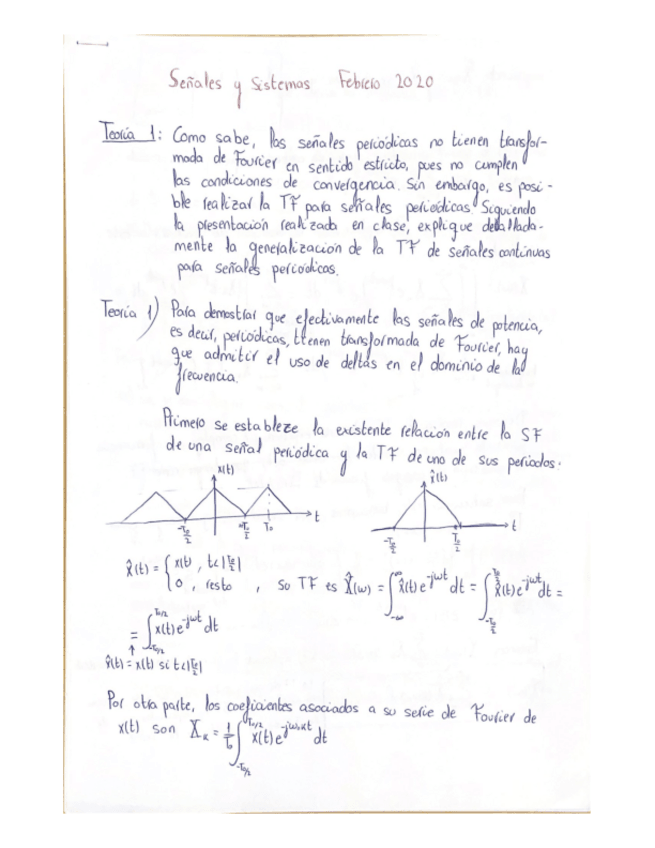 Señales y Sistemas Febrero 2020
Teoría 1: Como sabe, las señales periódicas no tienen transfor-
mada de Fourier en sentido estricto, pues no cumplen
las condiciones de convergencia. Sin embargo, es posi-
ble realizar la TF para señales periódicas. Siguiendo
la presentación realizada en clase, explique detallada-
mente la generalización de la TF de señales continuas
para señales periódicas.
Teoría 1) Para demostrar que efectivamente las señales de potencia,
es decir, periódicas, tienen transformada de Fourier, hay
que admitir el uso de deltas en el dominio de la
frecuencia.
Primero se estableze la existente relación entre la SF
de una señal periódica y la TF de uno de sus periodos.
x(t)
x̂(t)
t
t
-T₀/2
T₀/2
T₀
-T₀/2
T₀/2
x̂(t) = { x(t), t<|T₀/2|
0, resto , su TF es X̂(ω) = ∫_{-∞}^{∞} x̂(t) e^{-jωt} dt = ∫_{-T₀/2}^{T₀/2} x̂(t) e^{-jωt} dt =
= ∫_{-T₀/2}^{T₀/2} x(t) e^{-jωt} dt
↑
x̂(t) = x(t) si t<|T₀/2|
Por otra parte, los coeficientes asociados a su serie de Fourier de
x(t) son X_k = 1/T₀ ∫_{-T₀/2}^{T₀/2} x(t) e^{-jω₀kt} dt